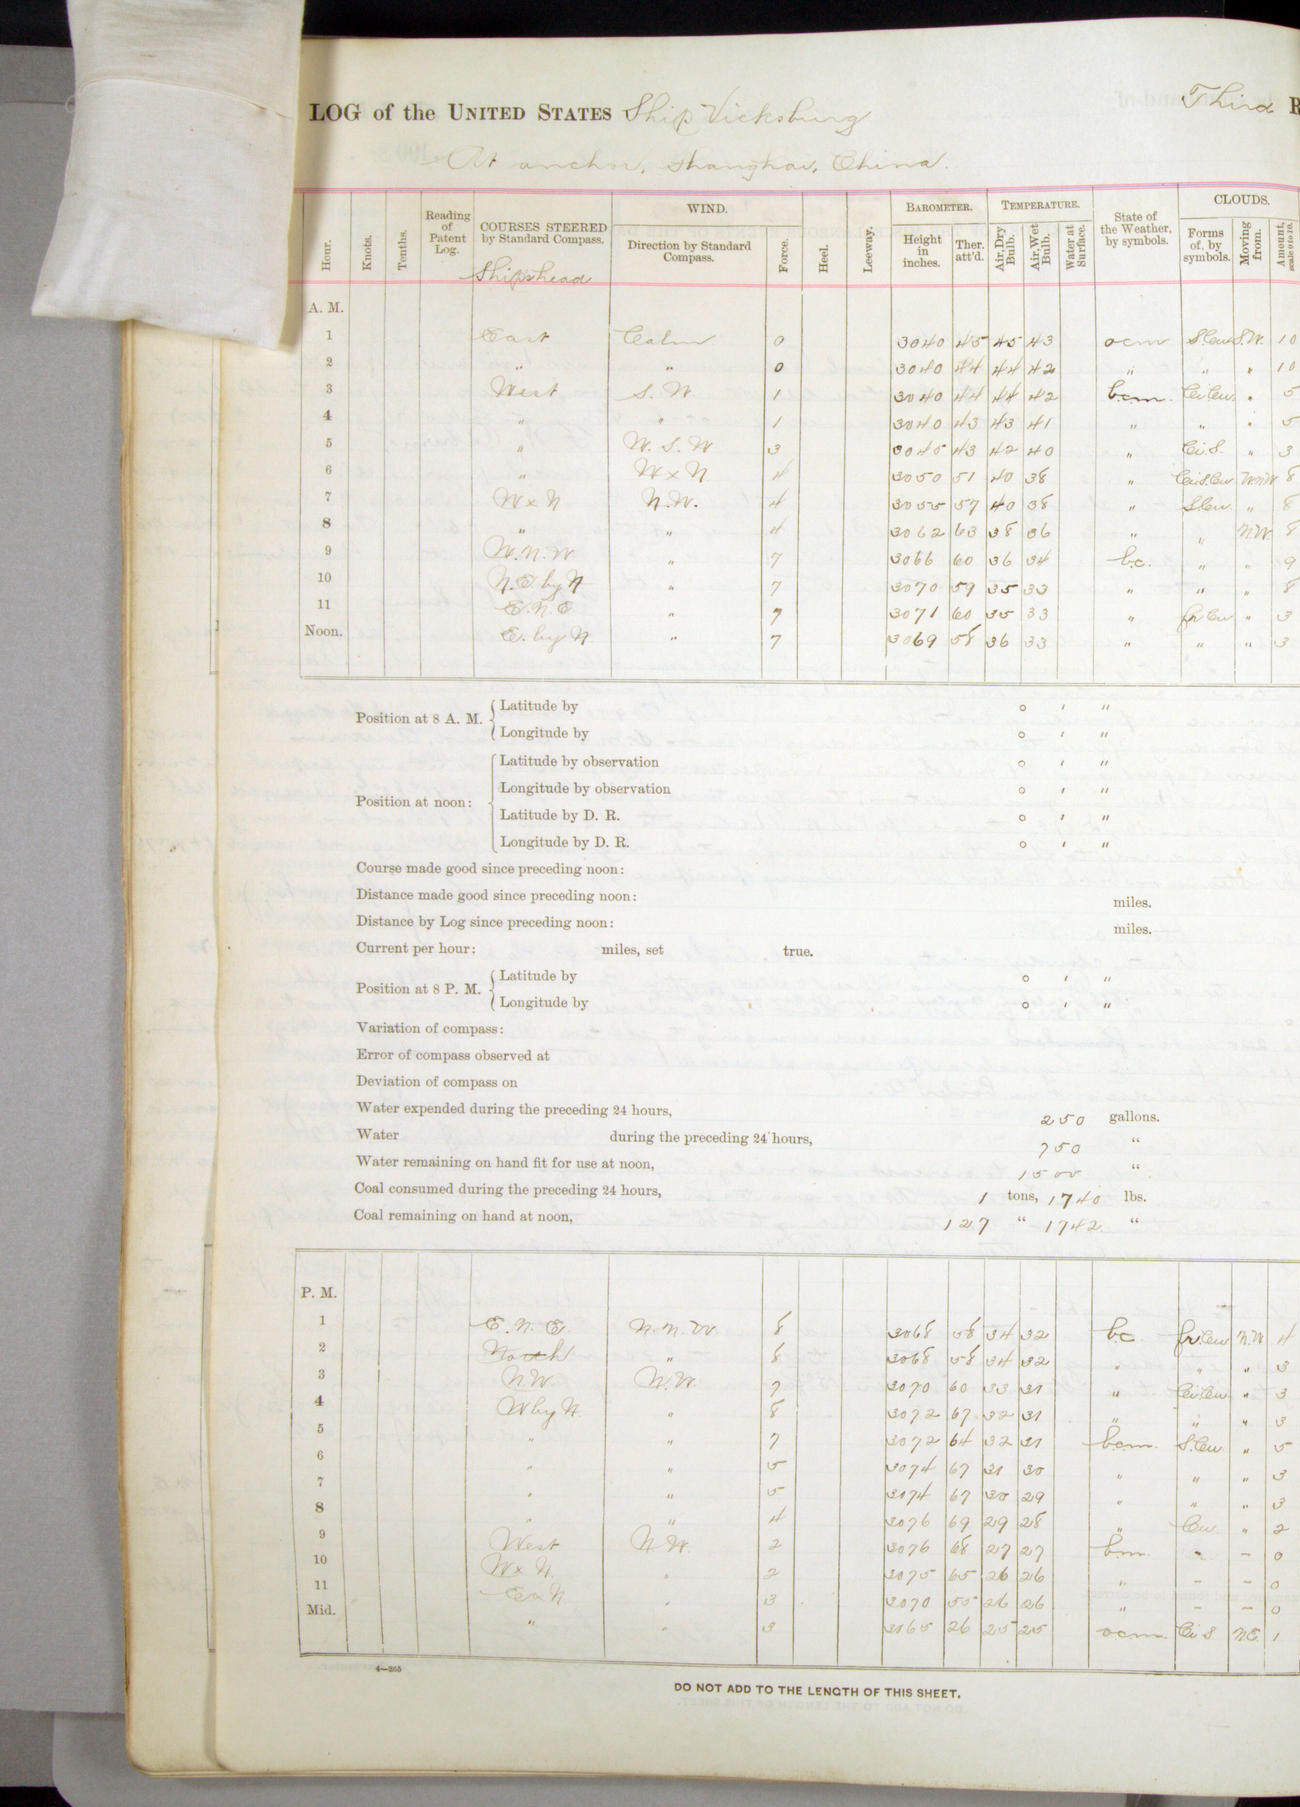 LOG of the UNITED STATES Ship Vicksburg Third R
At anchor, Shanghai, China.
Hour. Knots. Tenths. Reading of Patent Log. COURSES STEERED by Standard Compass. WIND. Direction by Standard Compass. Force. Heel. Leeway. BAROMETER. Height in inches. Ther. att'd. TEMPERATURE. Air, Dry Bulb. Air, Wet Bulb. Water at Surface. State of the Weather, by symbols. CLOUDS. Forms of, by symbols. Moving from. Amount, scale 0 to 10.
Ship's head
A. M.
1 East Calm 0 3040 45 45 43 ocm S.Cu S.W. 10
2 " " 0 3040 44 44 42 " " " 10
3 West S. W. 1 3040 44 44 42 bcm Ci Cu " 5
4 " " 1 3040 43 43 41 " " " 5
5 " W. S. W 3 3045 43 42 40 " Ci.S. " 3
6 " W x N 4 3050 51 40 38 " Ci.S.Cu WNW 8
7 W x N N.W. 4 3055 57 40 38 " S.Cu. " 8
8 " " 4 3062 63 38 36 " " N.W. 8
9 W.N.W " 7 3066 60 36 34 bc. " " 9
10 N.E. by N " 7 3070 59 35 33 " " " 8
11 E.N.E " 7 3071 60 35 33 " fr Cu " 3
Noon. E. by N. " 7 3069 58 36 33 " " " 3
Position at 8 A. M. Latitude by ° ' "
Longitude by ° ' "
Position at noon: Latitude by observation ° ' "
Longitude by observation ° ' "
Latitude by D. R. ° ' "
Longitude by D. R. ° ' "
Course made good since preceding noon:
Distance made good since preceding noon: miles.
Distance by Log since preceding noon: miles.
Current per hour: miles, set true.
Position at 8 P. M. Latitude by ° ' "
Longitude by ° ' "
Variation of compass:
Error of compass observed at
Deviation of compass on
Water expended during the preceding 24 hours, 250 gallons.
Water during the preceding 24 hours, 750 "
Water remaining on hand fit for use at noon, 1500 "
Coal consumed during the preceding 24 hours, 1 tons, 1740 lbs.
Coal remaining on hand at noon, 127 " 1742 "
P. M.
1 E. N. E. N.N.W. 8 3068 58 34 32 bc fr.Cu N.W 4
2 North " 8 3068 58 34 32 " " " 3
3 N.W. N.W. 7 3070 60 33 31 " Ci.Cu. " 3
4 W by N. " 8 3072 67 32 31 " " " 3
5 " " 7 3072 64 32 31 bcm. S.Cu. " 5
6 " " 5 3074 67 31 30 " " " 3
7 " " 5 3074 67 30 29 " " " 3
8 " " 4 3076 69 29 28 " Cu. " 2
9 West N.W. 2 3076 68 27 27 bm. - - 0
10 W x N. " 2 3075 65 26 26 " - - 0
11 E x N " 3 3070 55 26 26 " - - 0
Mid. " " 3 3065 26 25 25 ocm Ci S NE. 1
4—265
DO NOT ADD TO THE LENGTH OF THIS SHEET.